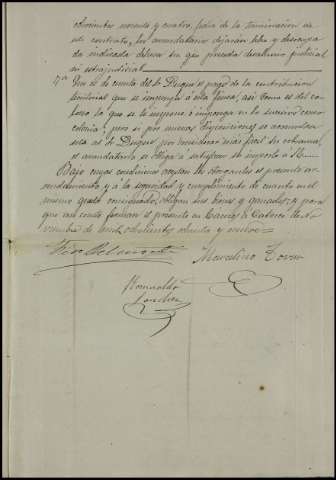 ochocientos noventa y cuatro, fecha de la terminacion de
este contrato, los arrendatarios dejarán libre y desocupa
da indicada dehesa sin que preceda desahucio judicial
ni estrajudicial.
17ª Será de cuenta del Sr. Duque el pago de la contribucion
territorial que se imponga á esta finca; así como es del co
lono la que se le impone ó imponga en lo sucesivo como
colonia; pero si por nuevas disposiciones se acumulara
esta al Sr. Duque por considerar mas facil su cobranza,
el arrendatario se obliga á satisfacer su importe á S.E.
Bajo cuyas condiciones aceptan los otorgantes el presente ar-
rendamiento y á la seguridad y cumplimiento de cuanto en el
mismo queda consignado, obligan sus bienes y ganados; y para
que así conste firman el presente en Caceres á Catorce de No-
viembre de mil ochocientos ochenta y nueve.
Marcelino Tovar
Romualdo
Sanchez